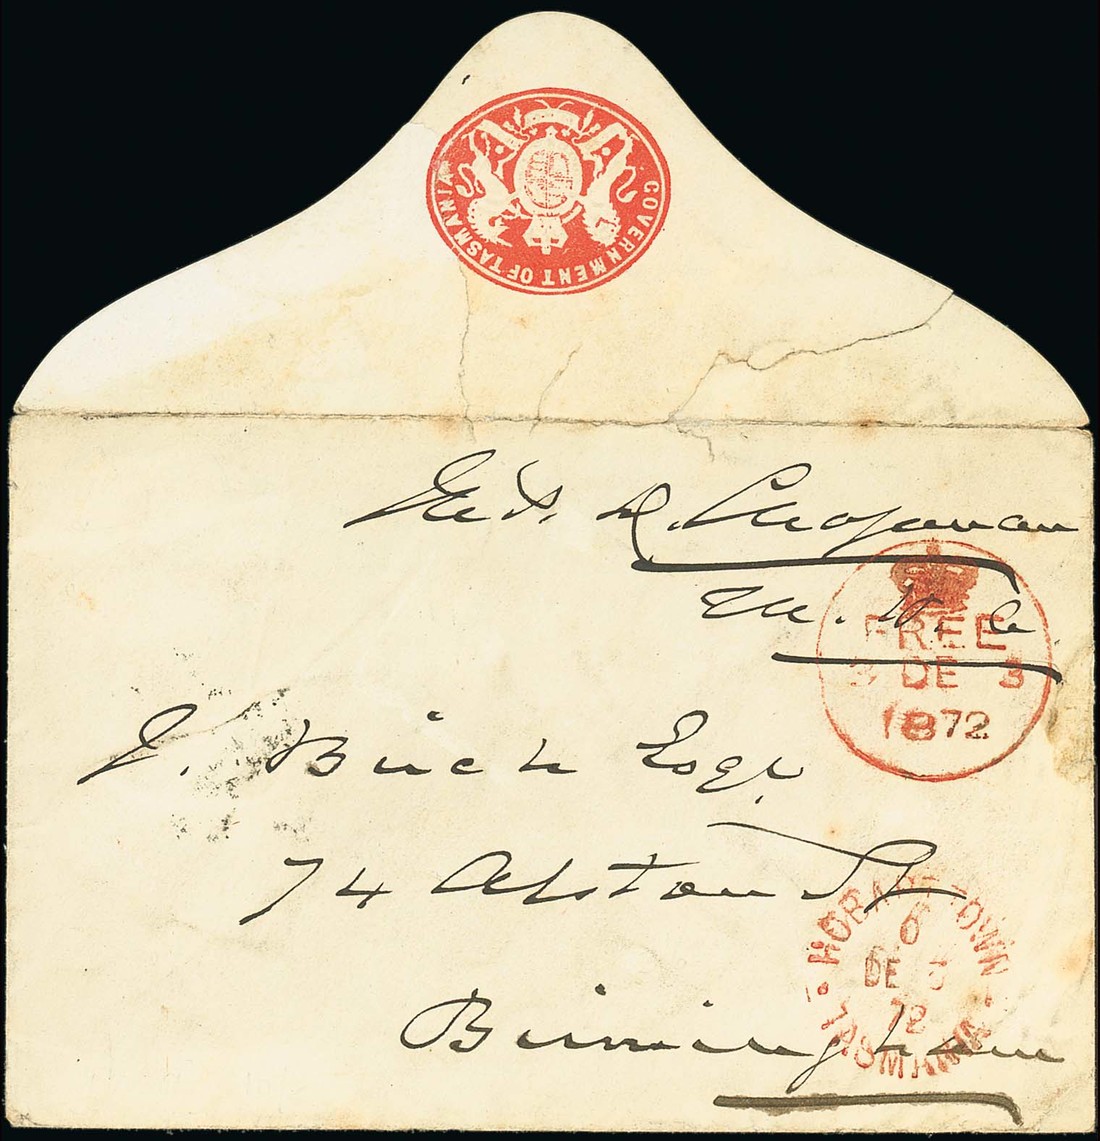 GOVERNMENT OF TASMANIA
Chapman
FREE
3 DE 3
1872
J. Birch Esqr.
74 Alston St
Birmingham
HOBART TOWN
6
DE 3
72
TASMANIA